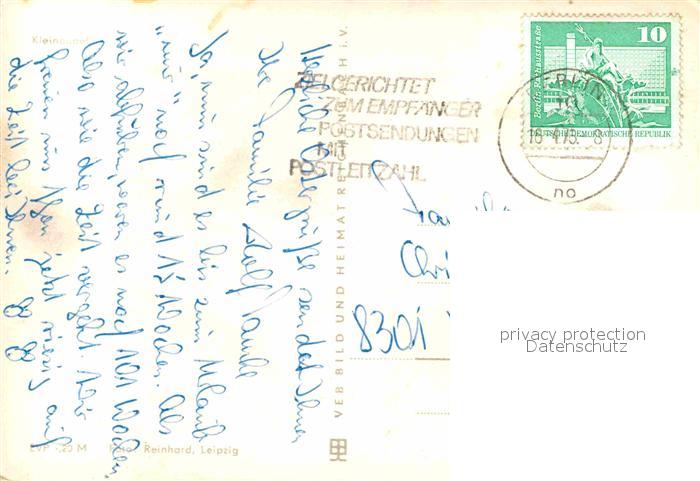 Kleinau
10
Berlin, Rathausstraße
DEUTSCHE DEMOKRATISCHE REPUBLIK
BERLIN
16.4.75. 8
no
ZIELGERICHTET
ZUM EMPFÄNGER
POSTSENDUNGEN
MIT
POSTLEITZAHL
Herzliche Ostergrüße sendet Ihnen
Ihre Familie Rolf
Ja, nun sind es bis zum Urlaub
"nur" noch rund 15 Wochen. Als
wir abfuhren, waren es noch 101 Wochen
Also wie die Zeit vergeht. Wir
freuen uns schon jetzt riesig auf
die Zeit bei Ihnen.
Familie
Chri
8301
VEB BILD UND HEIMAT REICHENBACH I. V.
EVP -,20 M Foto: Reinhard, Leipzig
privacy protection
Datenschutz